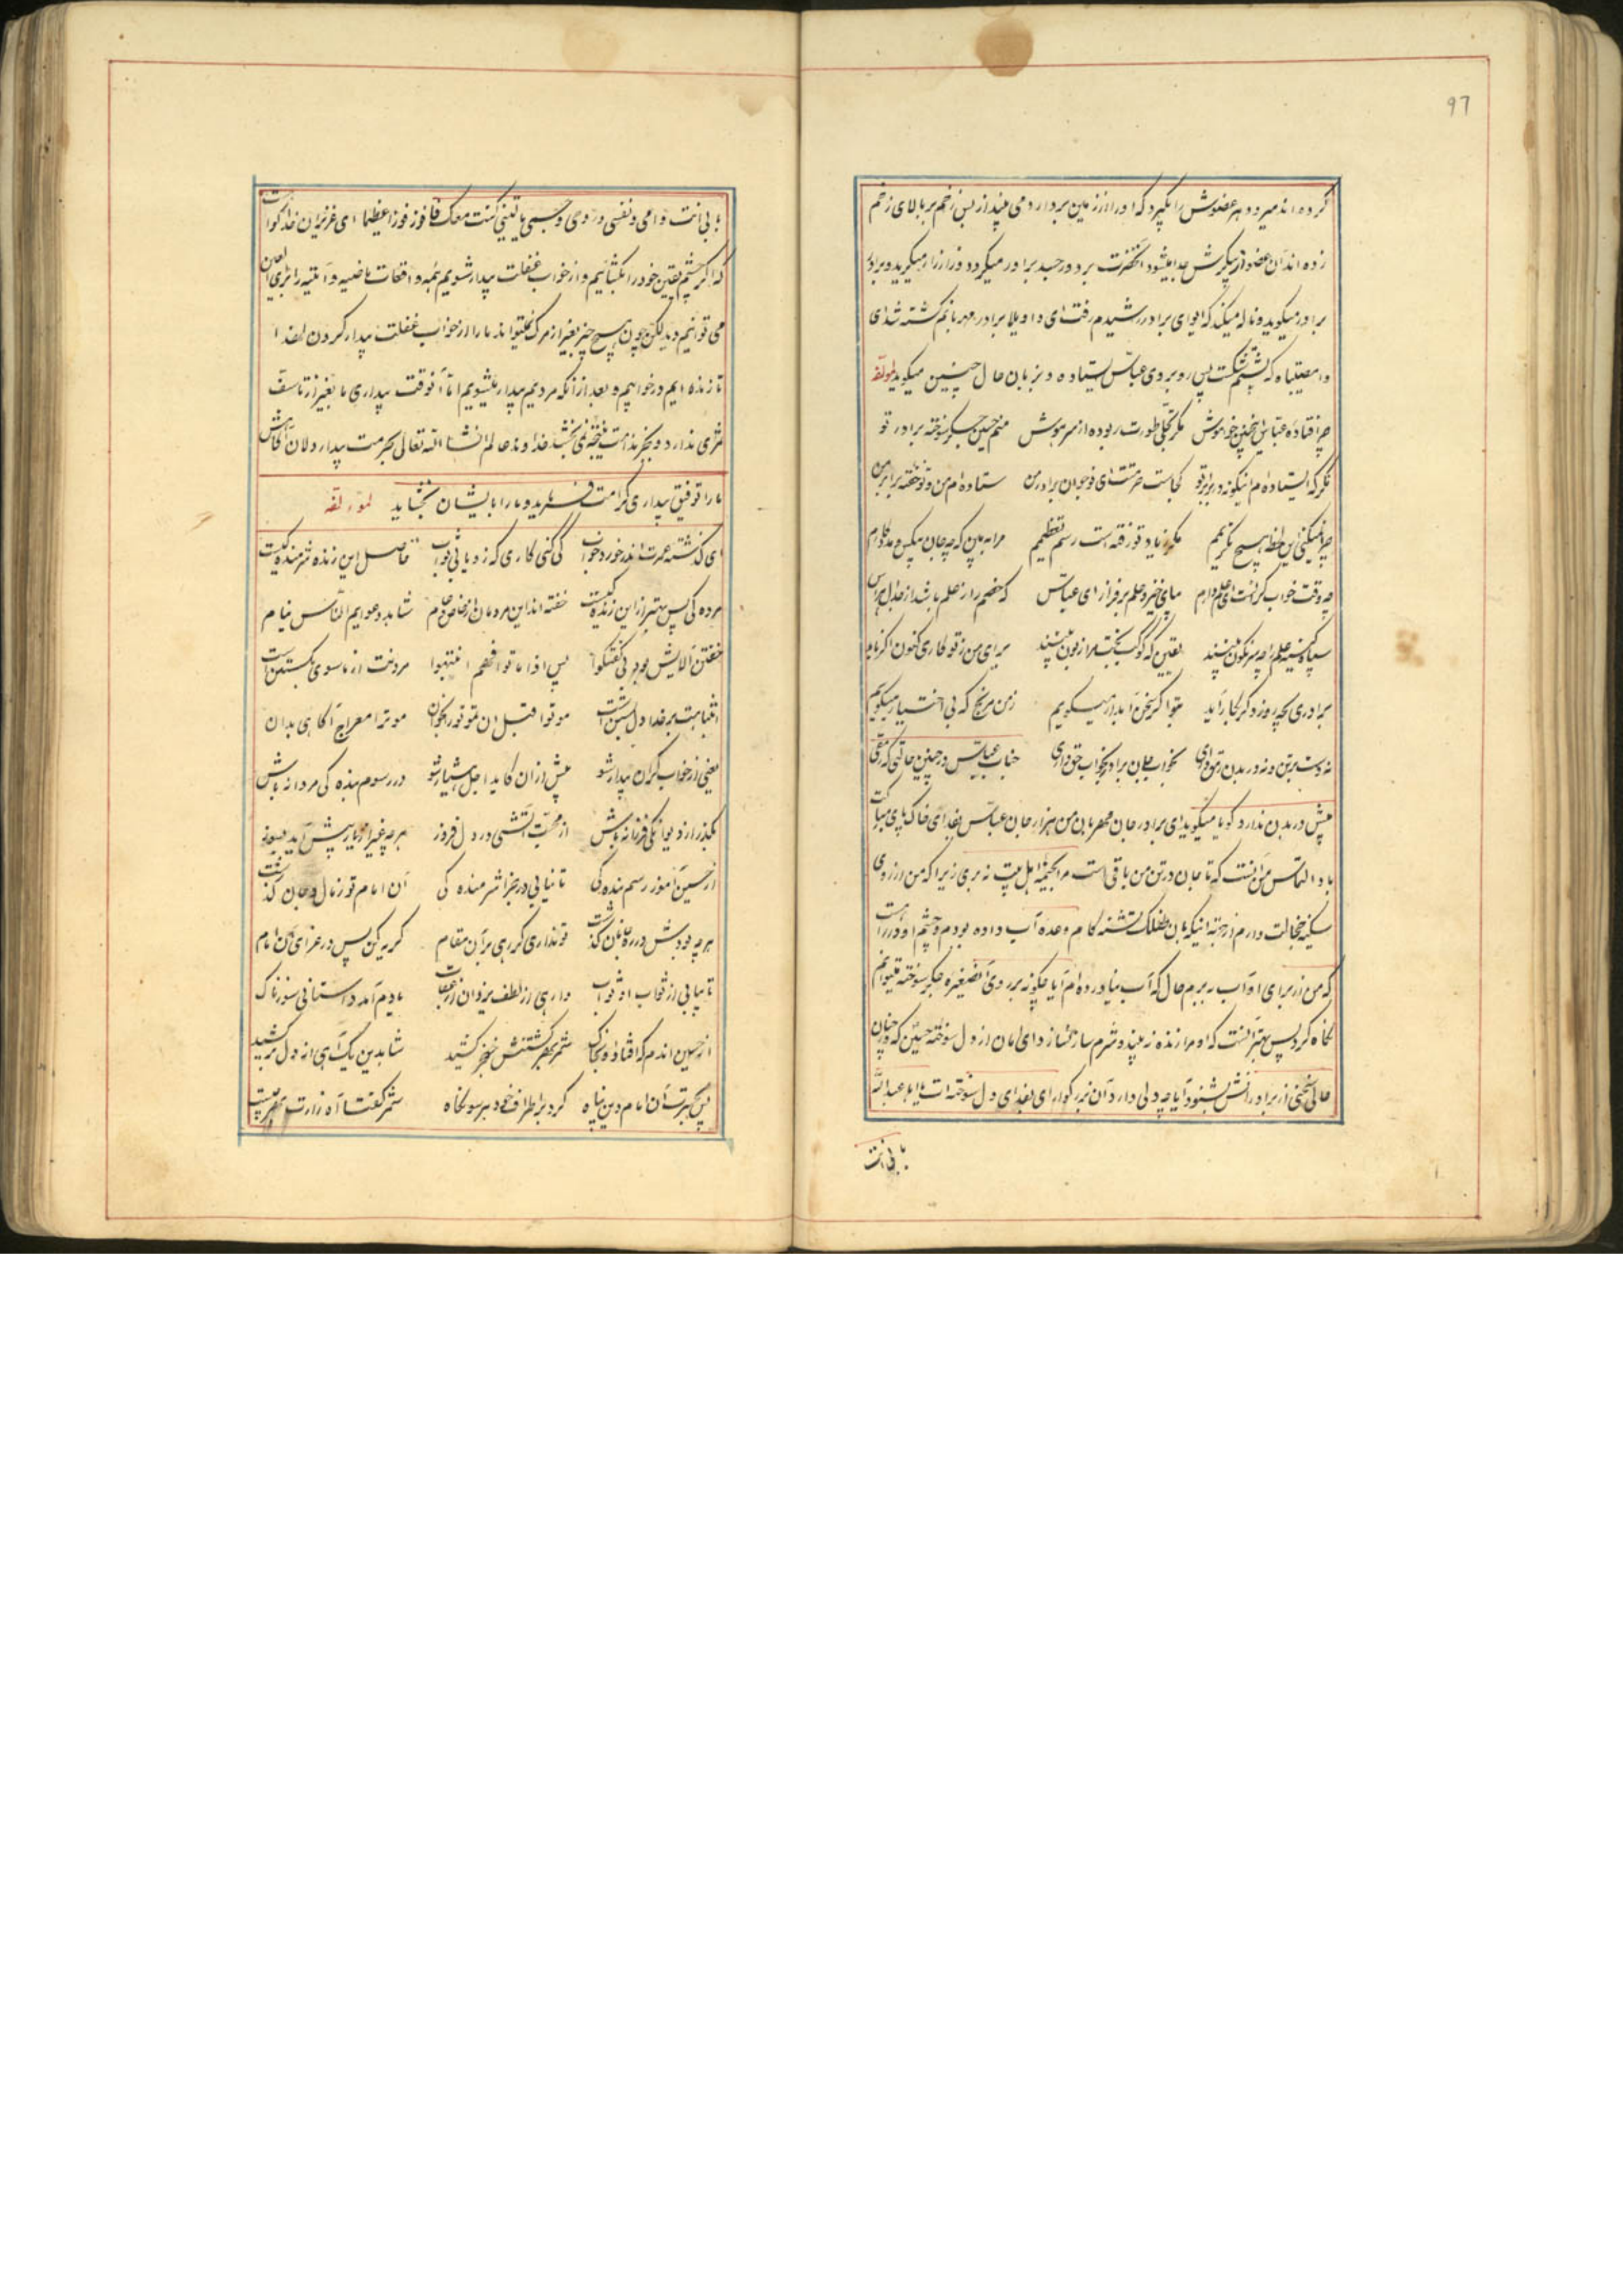 ۹۷
کرده اند میرود هر عضوش را بگیرد که او را از زمین بردارد می بیند از بس زخم بر بالای زخم
زده اند آن عضو از پیکرش جدا میشود آنحضرت برد ور جسد برادر میگردد و زار زار میگرید و برادر
برادر میگوید و ناله میکند که ایوای برادر رشیدم رفته ای واویلا برادر مهربانم کشته شده ای
وا مصیبتاه که پشتم شکست پس روبروی عباس ایستاده و بزبان حال چنین میگوید لمولفه
چرا فتاده عباس اینچنین خواموش مگر تجلی طورت ربوده از سر هوش منم حسین جگر سوخته برادر تو
نگر که ایستاده ام اینگونه در برابر تو کجاست حرمتت ای نوجوان برادر من ستاده ام من و تو خفته برابر من
چرا نمیکنی این لحظه هیچ تکریمم مگر ز یاد تو رفته است رسم تعظیمم مرا ببین که چه جان بیکس و مددکارم
چه وقت خواب گرانست ای علمدارم بپای خیز و علم برفراز ای عباس که خصم را ز علم باشد از جدال هراس
سپاه کینه علم را چه سرنگون بینند یقین که کوکب بخت مرا زبون بینند برای من ز تو کاری کنون اگر ناید
برادری بچه روز دگر بکار آید بتو اگر سخن آمد باز میگویم ز من مرنج که بی اختیار میگویم
نه دست بر تن و نه در بدن رمق داری بخواب جان برادر بخواب حق داری جناب عباس در چنین حالتی که رمقی
بیش در بدن ندارد گویا میگوید ای برادر جان مهربان من هزار جان عباس بفدای خاک پای مبارکت
باد التماس من آنست که تا جان در تن من باقی است مرا بخیمه اهل بیت نه بری زیرا که من از روی
سکینه خجالت دارم از جهة اینکه بآن طفلک تشنه کام وعده آب داده بودم و چشم او در راه است
که من از برای او آب ببرم حال که آب نیاورده ام آیا چگونه بر روی آن صغیره جگر سوخته میتوانم
نگاه کرد پس بهتر آنست که او مرا زنده نه بیند و شرمسار نسازد ای امان از دل سوخته حسین که در چنان
حالی سخنی از برادرانش بشنود آیا چه دلی دارد آن بزرگوار ای بفدای دل سوخته ات یا ابا عبد الله
بابی انت
بابی انت و امی و نفسی و روحی و جسمی یا لیتنی کنت معک فافوز فوزا عظیما ای عزیزان خدا گواه است
که اگر چشم یقین خود را بگشائیم و از خواب غفلت بیدار شویم همه واقعات ماضیه و آتیه را برای العین
می توانیم دید لیکن چون هیچ چیز بغیر از مرک نمیتواند ما را از خواب غفلت بیدار کردن لهذا
تا زنده ایم در خوابیم و بعد از آنکه مردیم بیدار میشویم اما آنوقت بیداری ما بغیر از تاسف
ثمری ندارد و بجز ندامت نتیجه نمی بخشد خداوند عالم انشاء الله تعالی بحرمت بیداردلان آگاهش
ما را توفیق بیداری کرامت فرماید و ما را بایشان بخشاید لمولفه
ای گذشته عمرت اندر خورد و خواب کی کنی کاری که زو یابی ثواب حاصل این زنده شرمنده کیست
مرده کی پس بهتر از این زنده کیست خفته اند این مردمان از خاص و عام شاهد دعوایم الناس نیام
خفتن آلایش بود بی گفتگو پس اذا ماتوا فهم انتبهوا مردنت از ماسوی بگسستن است
انتباهت بر خدا دل بستن است موتوا قبل ان تموتوا را بخوان موت را معراج آگاهی بدان
یعنی از خواب گران بیدار شو پیش از آن کاید اجل هشیار شو در رسوم بنده کی مردانه باش
بگذر از دیوانگی فرزانه باش از محبت آتشی در دل فروز هر چه غیر از یار پیش آید بسوز
از حسین آموز رسم بنده کی تا نیابی در جزا شرمنده کی آن امام تو ز مال و جان گذشت
هر چه بودش در ره جانان گذشت تو نداری گر رهی بر آن مقام گریه کن پس در عزای آن امام
تا بیابی از ثواب او ثواب وارهی از لطف یزدان از عقاب یادم آمد داستانی سوزناک
از حسین اندم که افتاد و بخاک شمر بهر کشتنش خنجر کشید شاه دین یک آهی از دل برکشید
پس بحیرت آن امام دین پناه کرد بر اطراف خود هر سو نگاه شمر گفتا آه زارت بهر چیست